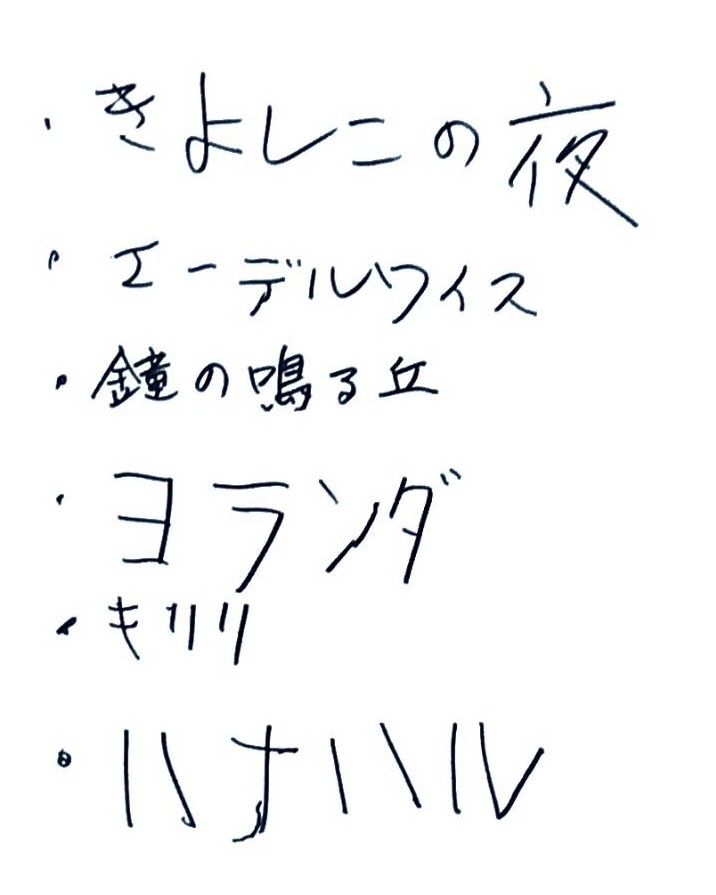 ・きよしこの夜
・エーデルワイス
・鐘の鳴る丘
・ヨランダ
・キリリ
・ハナハル